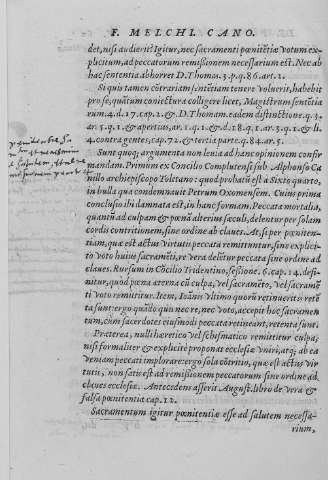 F. MELCHI. CANO.
det, nisi audierit? Igitur, nec sacramenti pœnitẽtiæ votum ex-
plicitum, ad peccatorum remissionem necessarium est. Nec ab
hac sententia abhorret D. Thom. 3. p. q. 86. art. 2.
Si quis tamen cõtrariam sentẽtiam tenere voluerit, habebit
pro se, quãtum coniectura colligere licet, Magistrum senten-
rum. 4. d. 17. cap. 2. & D. Thomam. eadem distinctione. q. 3.
ar. 5. q. 1. & apertius, ar. 1. q. 2. & d. 18. q. 1. ar. 3. q. 1. & li.
4. contra gentes, cap. 72. & tertia parte. q. 84. ar. 5.
Sunt quoq; argumenta non leuia ad hanc opinionem confir
mandam. Primum ex Concilio Complutensi sub Alphonso Ca
rillo archiepiscopo Toletano: quod probatũ est a Sixto quarto,
in bulla qua condemnauit Petrum Oxomensem. Cuius prima
conclusio ibi damnata est, in hanc formam. Peccata mortalia,
quantũ ad culpam & pœnã alterius sæculi, delentur per solam
cordis contritionem, sine ordine ab claues. At, si per pœniten-
tiam, quæ est actus virtutis peccata remittuntur, sine explici-
to voto huius sacramẽti, re vera delẽtur peccata sine ordine ad
claues. Rursum in Cõcilio Tridentino, sessione. 6. cap. 14. defi-
nitur, quod pœna æterna cũ culpa, vel sacramẽto, vel sacramẽ
ti voto remittitur. Item, Ioãnis vltimo quorũ retinueritis retẽ
ta sunt: ergo quãdo quis nec re, nec voto, accepit hoc sacramen
tum, cum sacerdotes eiusmodi peccata retineant, retenta sunt.
Præterea, nulli hæretico vel schismatico remittitur culpa,
nisi formaliter & explicitè proponat ecclesiæ vniri, atq; ab ea
veniam peccati implorare: ergo sola cõtritio, quæ est actus vir-
tutis, non satis est ad remissionem peccatorum sine ordine ad
claues ecclesiæ. Antecedens asserit August. libro de vera &
falsa pœnitentia cap. 12.
Sacramentum igitur pœnitentiæ esse ad salutem necessa-
rium,